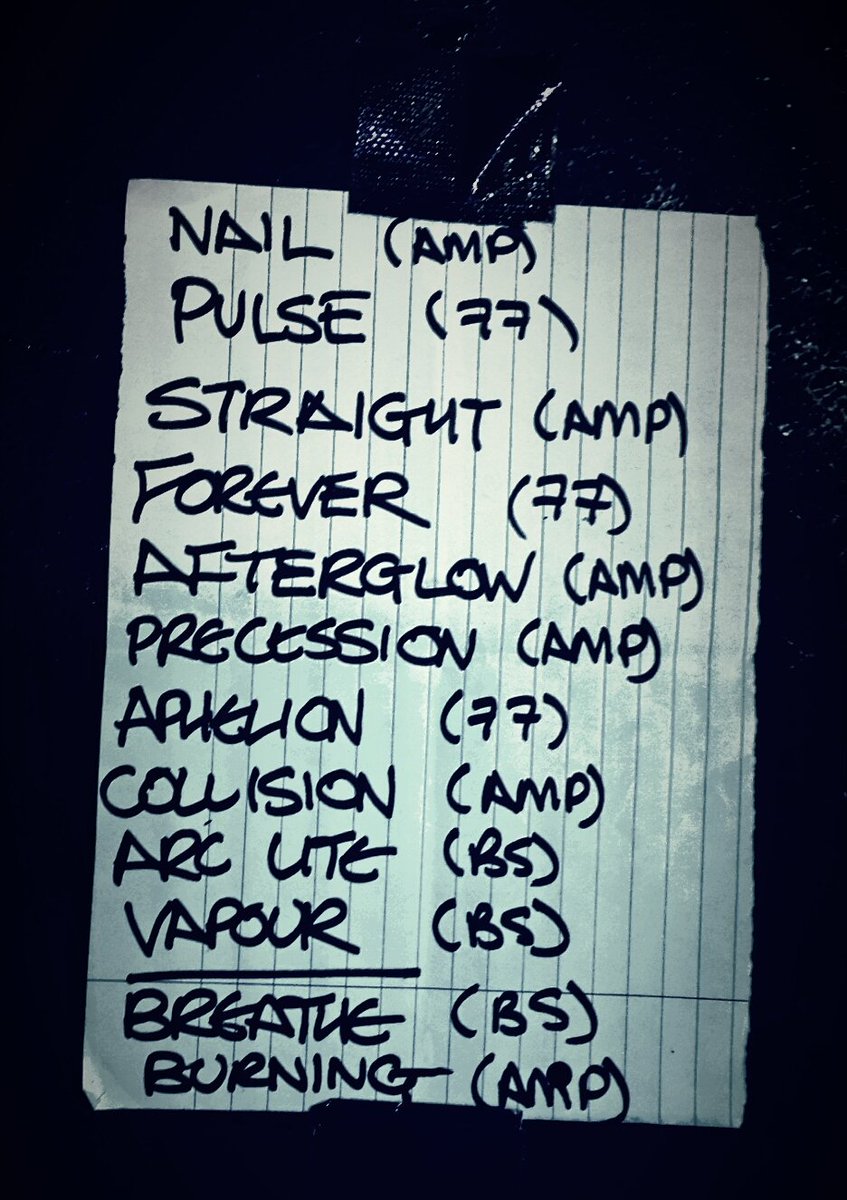 NAIL (AMP)
PULSE (77)
STRAIGHT (AMP)
FOREVER (77)
AFTERGLOW (AMP)
PRECESSION (AMP)
APHELION (77)
COLLISION (AMP)
ARC LITE (BS)
VAPOUR (BS)
BREATHE (BS)
BURNING (AMP)